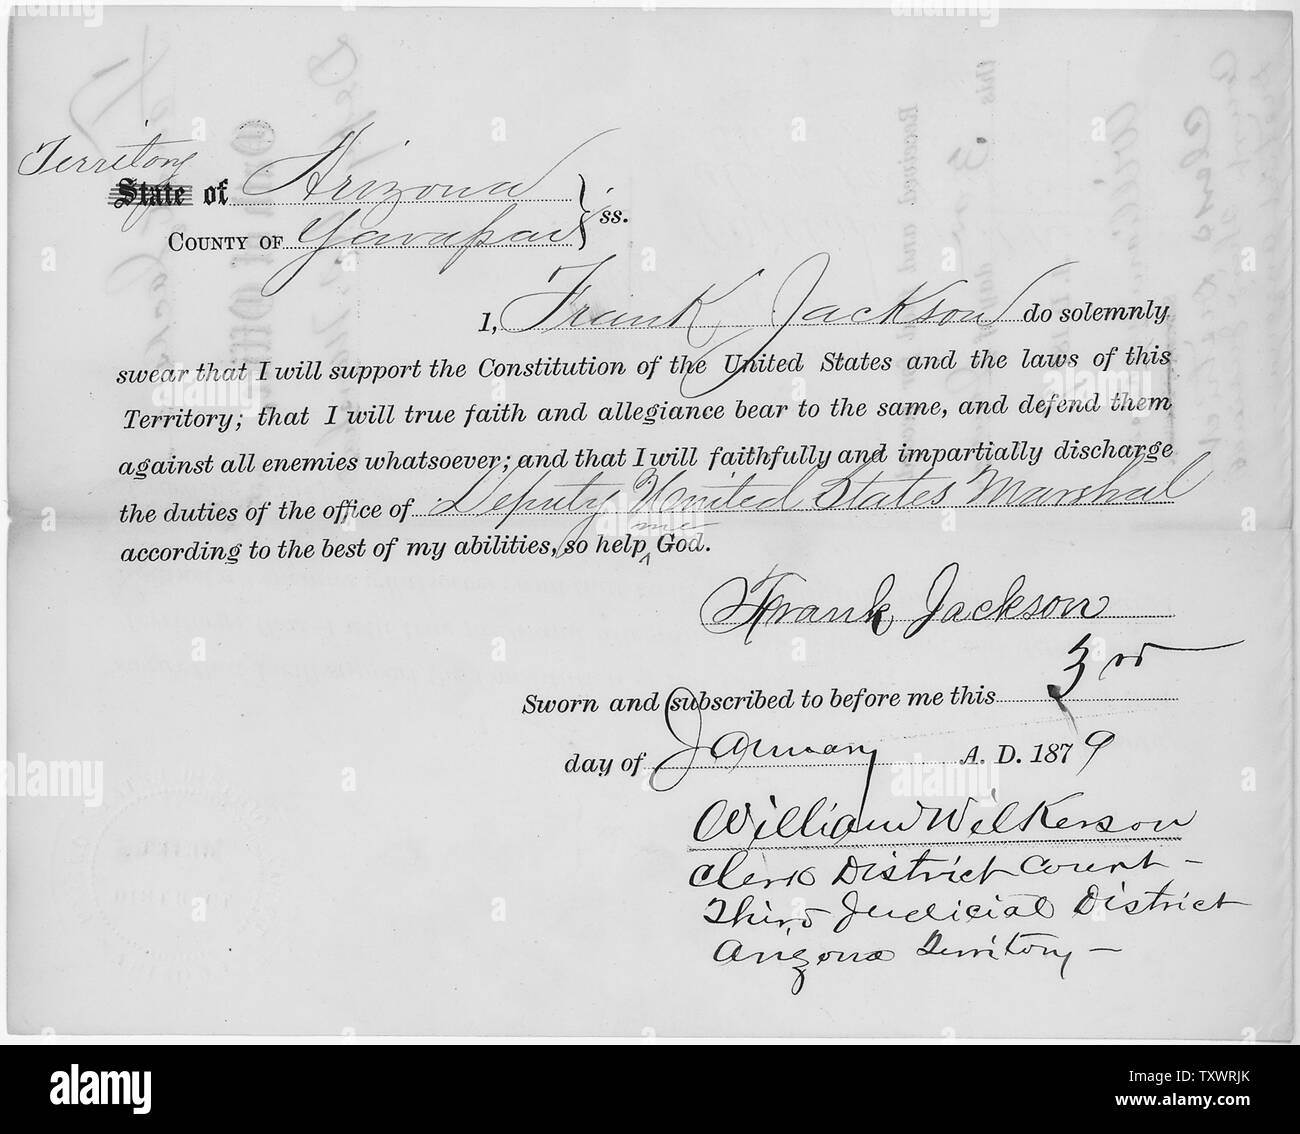 Territory
State of Arizona
County of Yavapai } ss.
I, Frank Jackson do solemnly
swear that I will support the Constitution of the United States and the laws of this
Territory; that I will true faith and allegiance bear to the same, and defend them
against all enemies whatsoever; and that I will faithfully and impartially discharge
the duties of the office of Deputy United States Marshal
me
according to the best of my abilities, so help ^ God.
Frank Jackson
Sworn and subscribed to before me this 3rd
day of January A. D. 1879
William Wilkerson
Clerk District Court -
Third Judicial District
Arizona Territory -
alamy
Image ID: TXWRJK
www.alamy.com